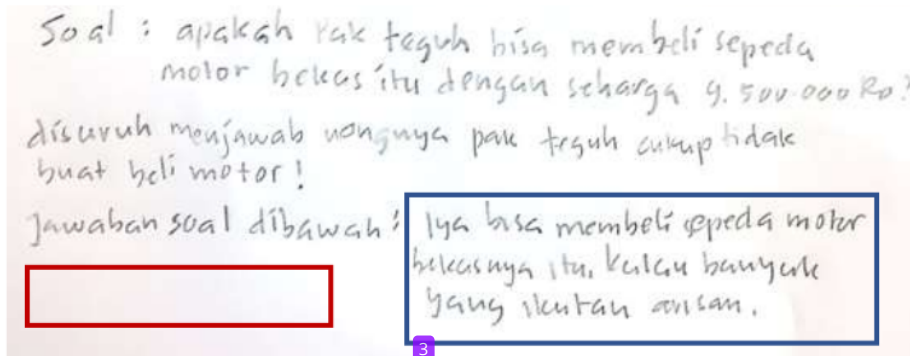 Soal : apakah Pak teguh bisa membeli sepeda
motor bekas itu dengan seharga 9.500.000 Rp?
disuruh menjawab uangnya pak teguh cukup tidak
buat beli motor!
Jawaban soal dibawah :
Iya bisa membeli sepeda motor
bekasnya itu, kalau banyak
yang ikutan arisan.
3